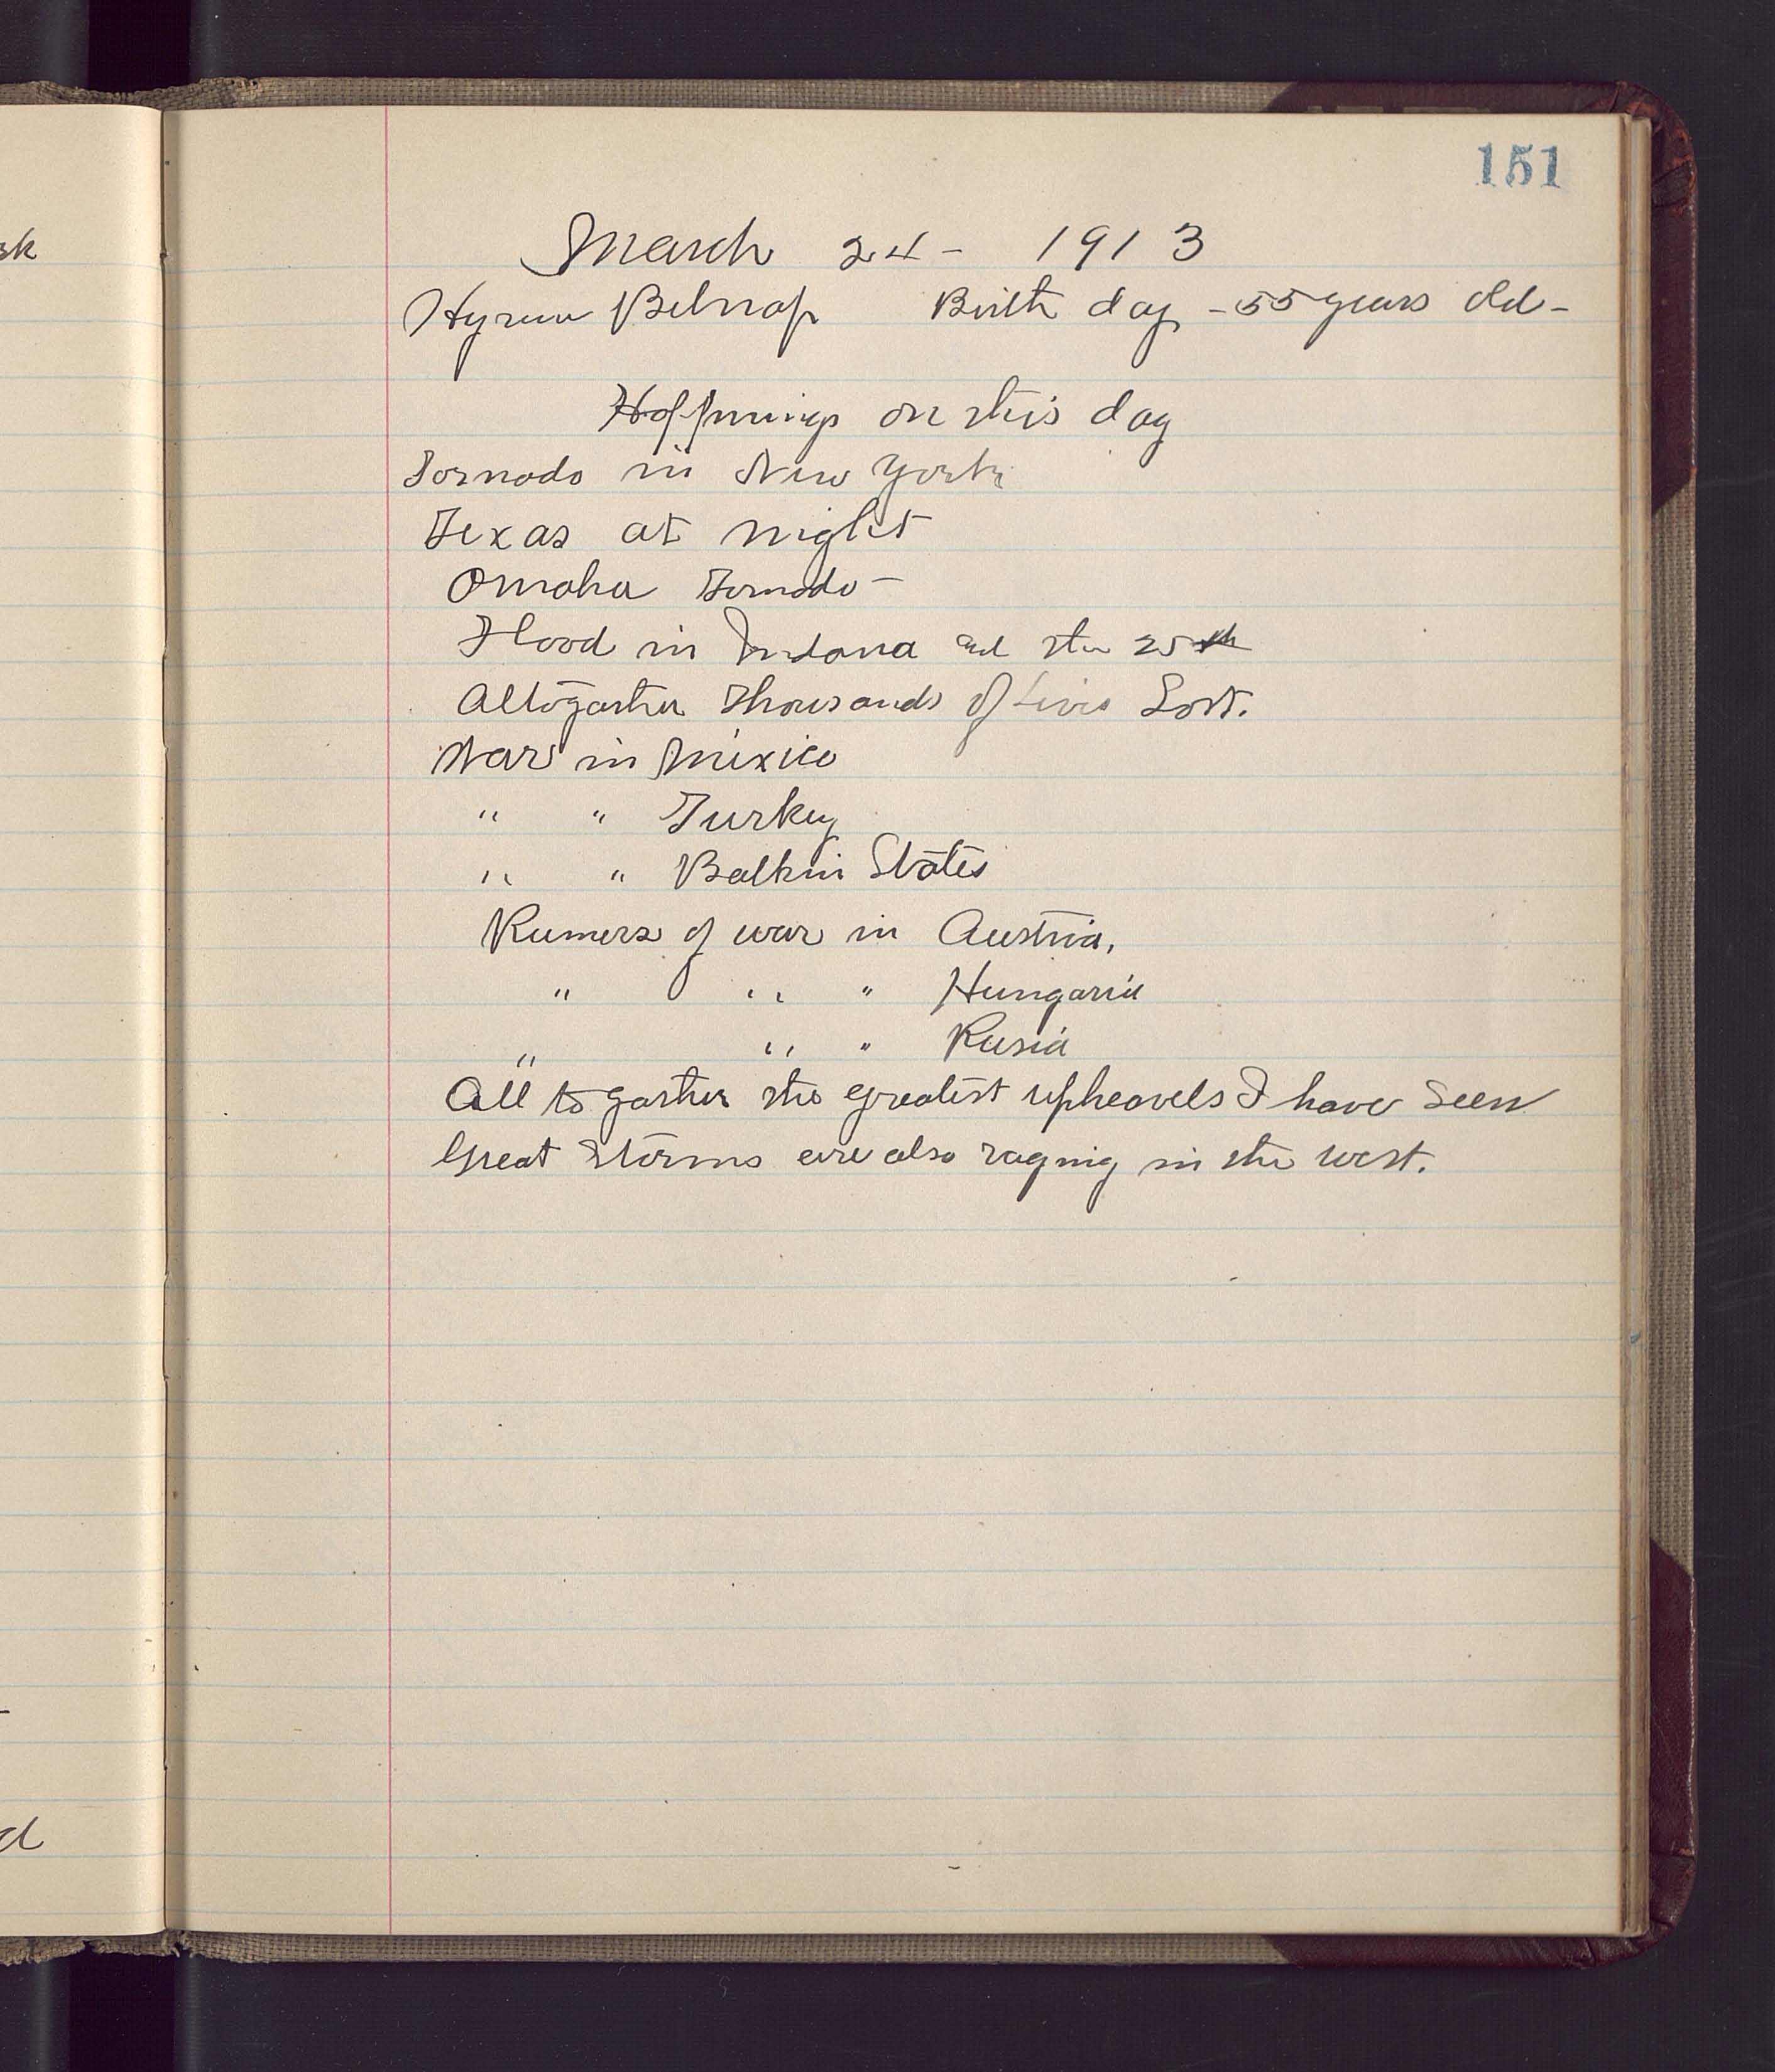 sk
151
March 24 - 1913
Hyrum Belnap Birth day - 55 years old -
Happnings on this day
Tornado in New York
Texas at night
Omaha Tornado -
Flood in Indana and the 25th
Altogather thousands of Lives Lost.
War in Mixico
" " Turkey
" " Balkin States
Rumers of war in Austria,
" " " Hungaria
" " " Rusia
All to gather the greatest upheavels I have Seen
Great Storms are also raging in the West.
d